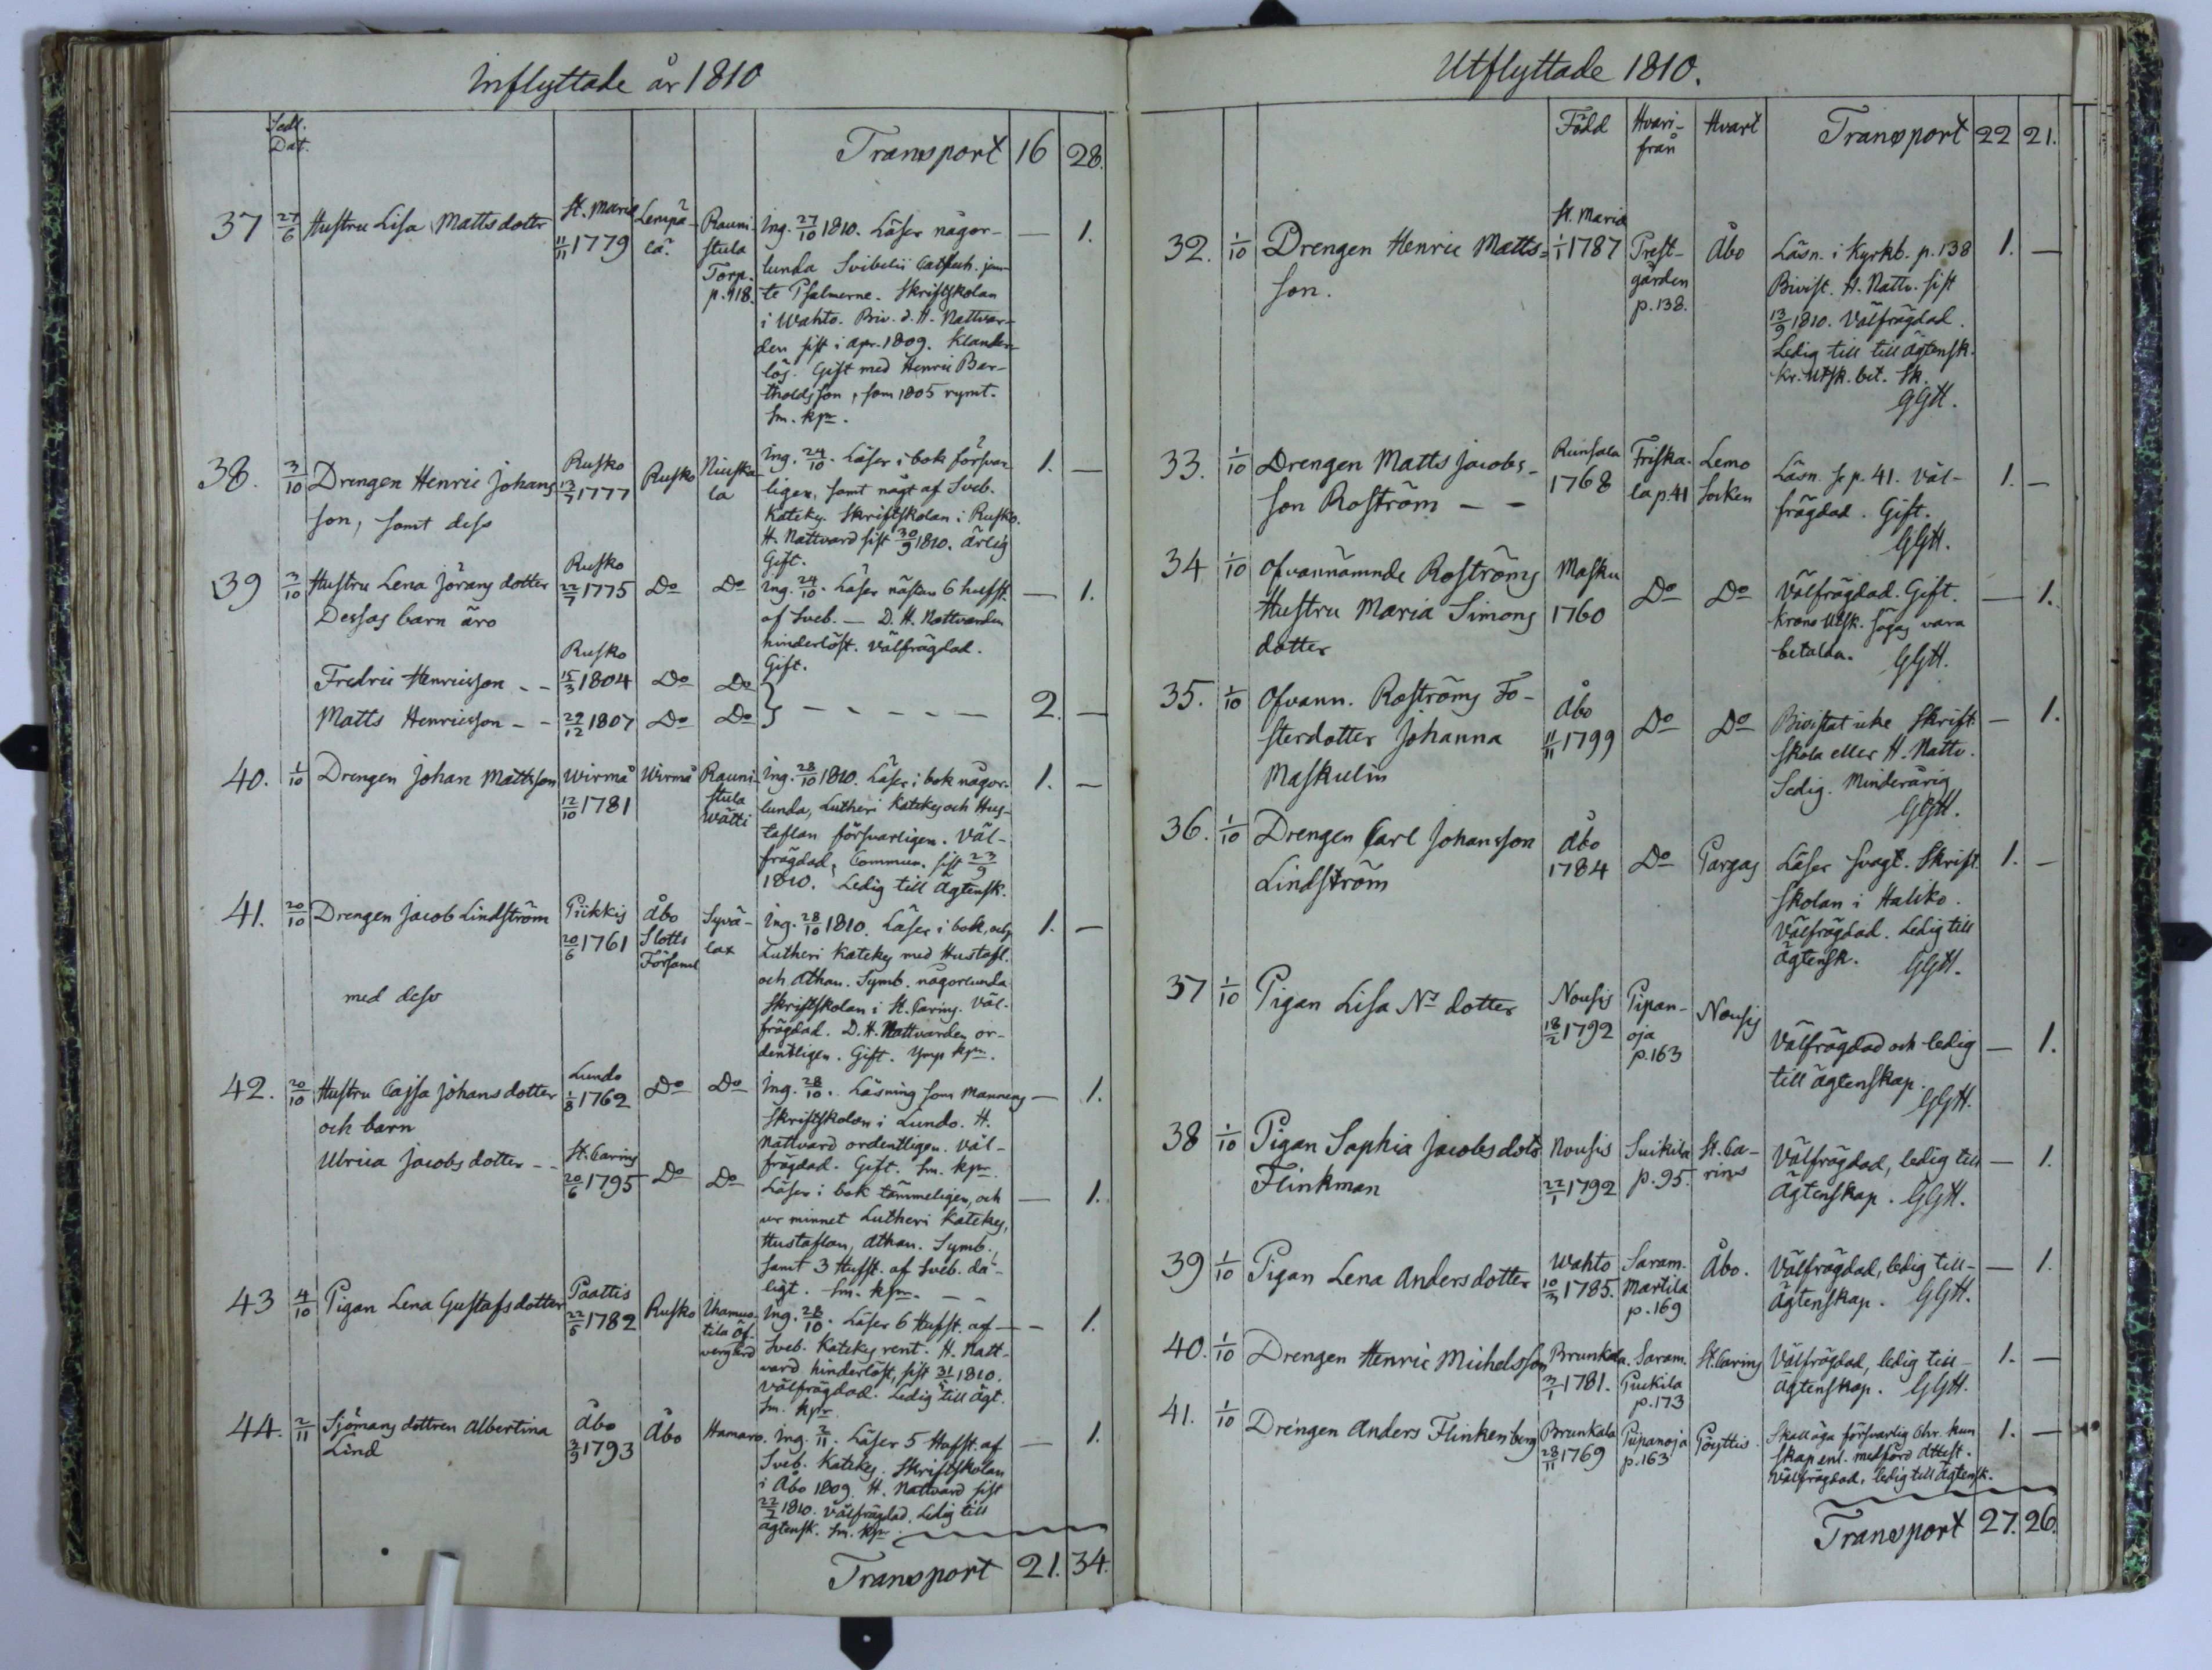 Inflyttade år 1810
Sedl. Dat.
Transport 16 28.
37 27/6 Hustru Lisa Mattsdotter St. Marie 11/11 1779 Lempälä Rauni-
stula
Torp.
p. 118.
Ing. 27/10 1810. Läser någor- — 1.
lunda Svibelii Catech. jem-
te Psalmerne. Skriftskolan
i Wahto. Biv. d. H. Nattvar-
den sist i Apr. 1809. Klander-
lös. Gift med Henric Ber-
tholdsson, som 1805 rymt.
Sm. kpr.
38. 3/10 Drengen Henric Johans- Rusko 13/7 1777 Rusko Niuska-
son, samt dess la
Ing. 24/10. Läser i bok försvar- 1. —
ligen, samt någt af Sveb.
Kateky. Skriftskolan i Rusko.
H. Nattvard sist 30/9 1810. Ärlig
Gift.
39 3/10 Hustru Lena Jörans dotter Rusko 22/7 1775 Do Do
Dessas barn äro
Ing. 24/10. Läser nästan 6 hufst. — 1.
af Sveb. — D. H. Nattvarden
hinderlöst. Välfrägdad.
Gift.
Fredric Henricsson - - Rusko 15/3 1804 Do Do
Matts Henricsson - - 29/12 1807 Do Do } - - - - - 2. —
40. 1/10 Drengen Johan Mattsson Wirmå 12/10 1781 Wirmå Rauni-
stula
Wätti
Ing. 28/10 1810. Läser i bok någor- 1. —
lunda, Lutheri Katekes och Hus-
taflan försvarligen. Väl-
frägdad, Commun. sist 23/9
1810. Ledig till Ägtensk.
41. 20/10 Drengen Jacob Lindström Piikkis 20/6 1761 Åbo
Slotts
Församl Syvä-
lax
med dess
Ing. 28/10 1810. Läser i bok, och 1. —
Lutheri Katekes med Hustafl.
och Athan. Symb. någorlunda
Skriftskolan i St. Carins. Väl-
frägdad. D. H. Nattvarden or-
dentligen. Gift. kpr.
42. 20/10 Hustru Cajsa Johansdotter Lundo 1/8 1762 Do Do
och barn
Ing. 28/10. Läsning som Mannens — 1.
Skriftskolan i Lundo. H.
Nattvard ordentligen. Väl-
frägdad. Gift. Sm. kpr.
Ulrica Jacobsdotter - - St. Carins 20/6 1795 Do Do
Läser i bok tämmeligen, och — 1.
ur minnet Lutheri Katekes,
Hustaflan, Athan. Symb.,
samt 3 Hufst. af Sveb. då-
ligt. Sm. kpr. - -
43 4/10 Pigan Lena Gustafsdotter Paattis 22/5 1782 Rusko Ihamus-
tila Öf-
vergård
Ing. 28/10. Läser 6 Hufst. af — 1.
Sveb. Katekes rent. H. Natt-
vard hinderlöst, sist 1810.
Välfrägdad. Ledig till Ägt.
Sm. kpr.
44. 2/11 Sjömans dottren Albertina Åbo 2/9 1793 Åbo Hamaro.
Lind
Ing. 2/11. Läser 5 Hufst. af — 1.
Sveb. Katekes. Skriftskolan
i Åbo 1809. H. Nattvard sist
22/7 1810. Välfrägdad. Ledig till
ägtensk. Sm. kpr.
Transport 21. 34.
Utflyttade 1810.
Född Hvari-
från Hvart Transport 22 21.
32. 1/10 Drengen Henric Matts- St. Marie 1/1 1787 Prest-
son. gården
p. 138. Åbo
Läsn. i Kyrkb. p. 138 1. —
Bivist. H. Nattv. sist
13/9 1810. Välfrägdad.
Ledig till till Ägtensk.
Kr. Utsk. bet. Sk.
GGH.
33. 1/10 Drengen Matts Jacobs- Runsala 1768 Friska-
son Roström - - la p. 41 Lemo
Socken
Läsn. se p. 41. Väl- 1. —
frägdad. Gift.
GGH.
34 1/10 Ofvannämnde Roströms Masku 1760 Do Do
Hustru Maria Simons
dotter
Välfrägdad. Gift. — 1.
Krono Utsk. sägas vara
betalda. GGH.
35. 1/10 Ofvann. Roströms Fo- Åbo 11/11 1799 Do Do
sterdotter Johanna
Maskulin
Bivistat icke Skrift- — 1.
skola eller H. Nattv.
Ledig. Minderårig
GGH.
36. 1/10 Drengen Carl Johansson Åbo 1784 Do Pargas
Lindström
Läser svagt. Skrift- 1. —
skolan i Haliko.
Välfrägdad. Ledig till
Ägtensk. GGH.
37 1/10 Pigan Lisa Ns dotter Nousis 18/2 1792 Pipan-
oja
p. 163 Nousis
Välfrägdad och ledig — 1.
till Ägtenskap.
GGH.
38 1/10 Pigan Sophia Jacobsdotr Nousis 22/1 1792 Suikila
p. 95. St. Ca-
rins
Flinkman
Välfrägdad, ledig till — 1.
Ägtenskap. GGH.
39 1/10 Pigan Lena Andersdotter Wahto 10/3 1785. Saram.
Martila
p. 169 Åbo.
Välfrägdad, ledig till — 1.
Ägtenskap. GGH.
40. 1/10 Drengen Henric Michelsson Brunkala. 3/1 1781. Saram.
Puckila
p. 173 St. Carins
Välfrägdad, ledig till 1. —
Ägtenskap. GGH.
41. 1/10 Drengen Anders Flinkenberg Brunkala 28/11 1769 Pipanoja
p. 163 Pöyttis
Skall äga försvarlig Chr. kun- 1. —
skap enl. medförd Attest.
Välfrägdad, ledig till Ägtensk.
Transport 27. 26.